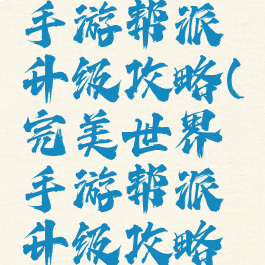 手游帮派
升级攻略(
完美世界
手游帮派
升级攻略